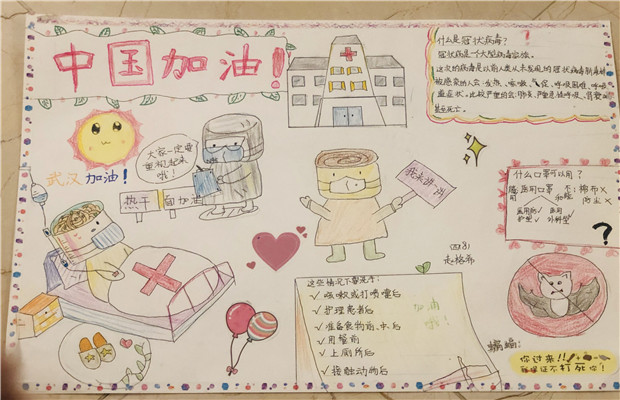 中国加油!
什么是冠状病毒?
冠状病是一个大型病毒家族,
这次的病毒是以前人类从未发现的冠状病毒新毒株
被感染的人会:发热、咳嗽、气促、呼吸困难、呼吸
重症状。比较严重的会:肺炎、严重急性呼吸、肾衰
甚至死亡。
大家一定要
重视起来
哦!
武汉加油!
热干面加油
我来帮消
什么口罩可以用?
医用 外科
棉布×
防尘×
?
(四3)
这些情况下要洗手:
✓咳嗽或打喷嚏后
✓护理患者后
✓准备食物前、中、后
✓用餐前
✓上厕所后
✓接触动物后
加油
哦!
蝙蝠:
你过来!!
打死你!